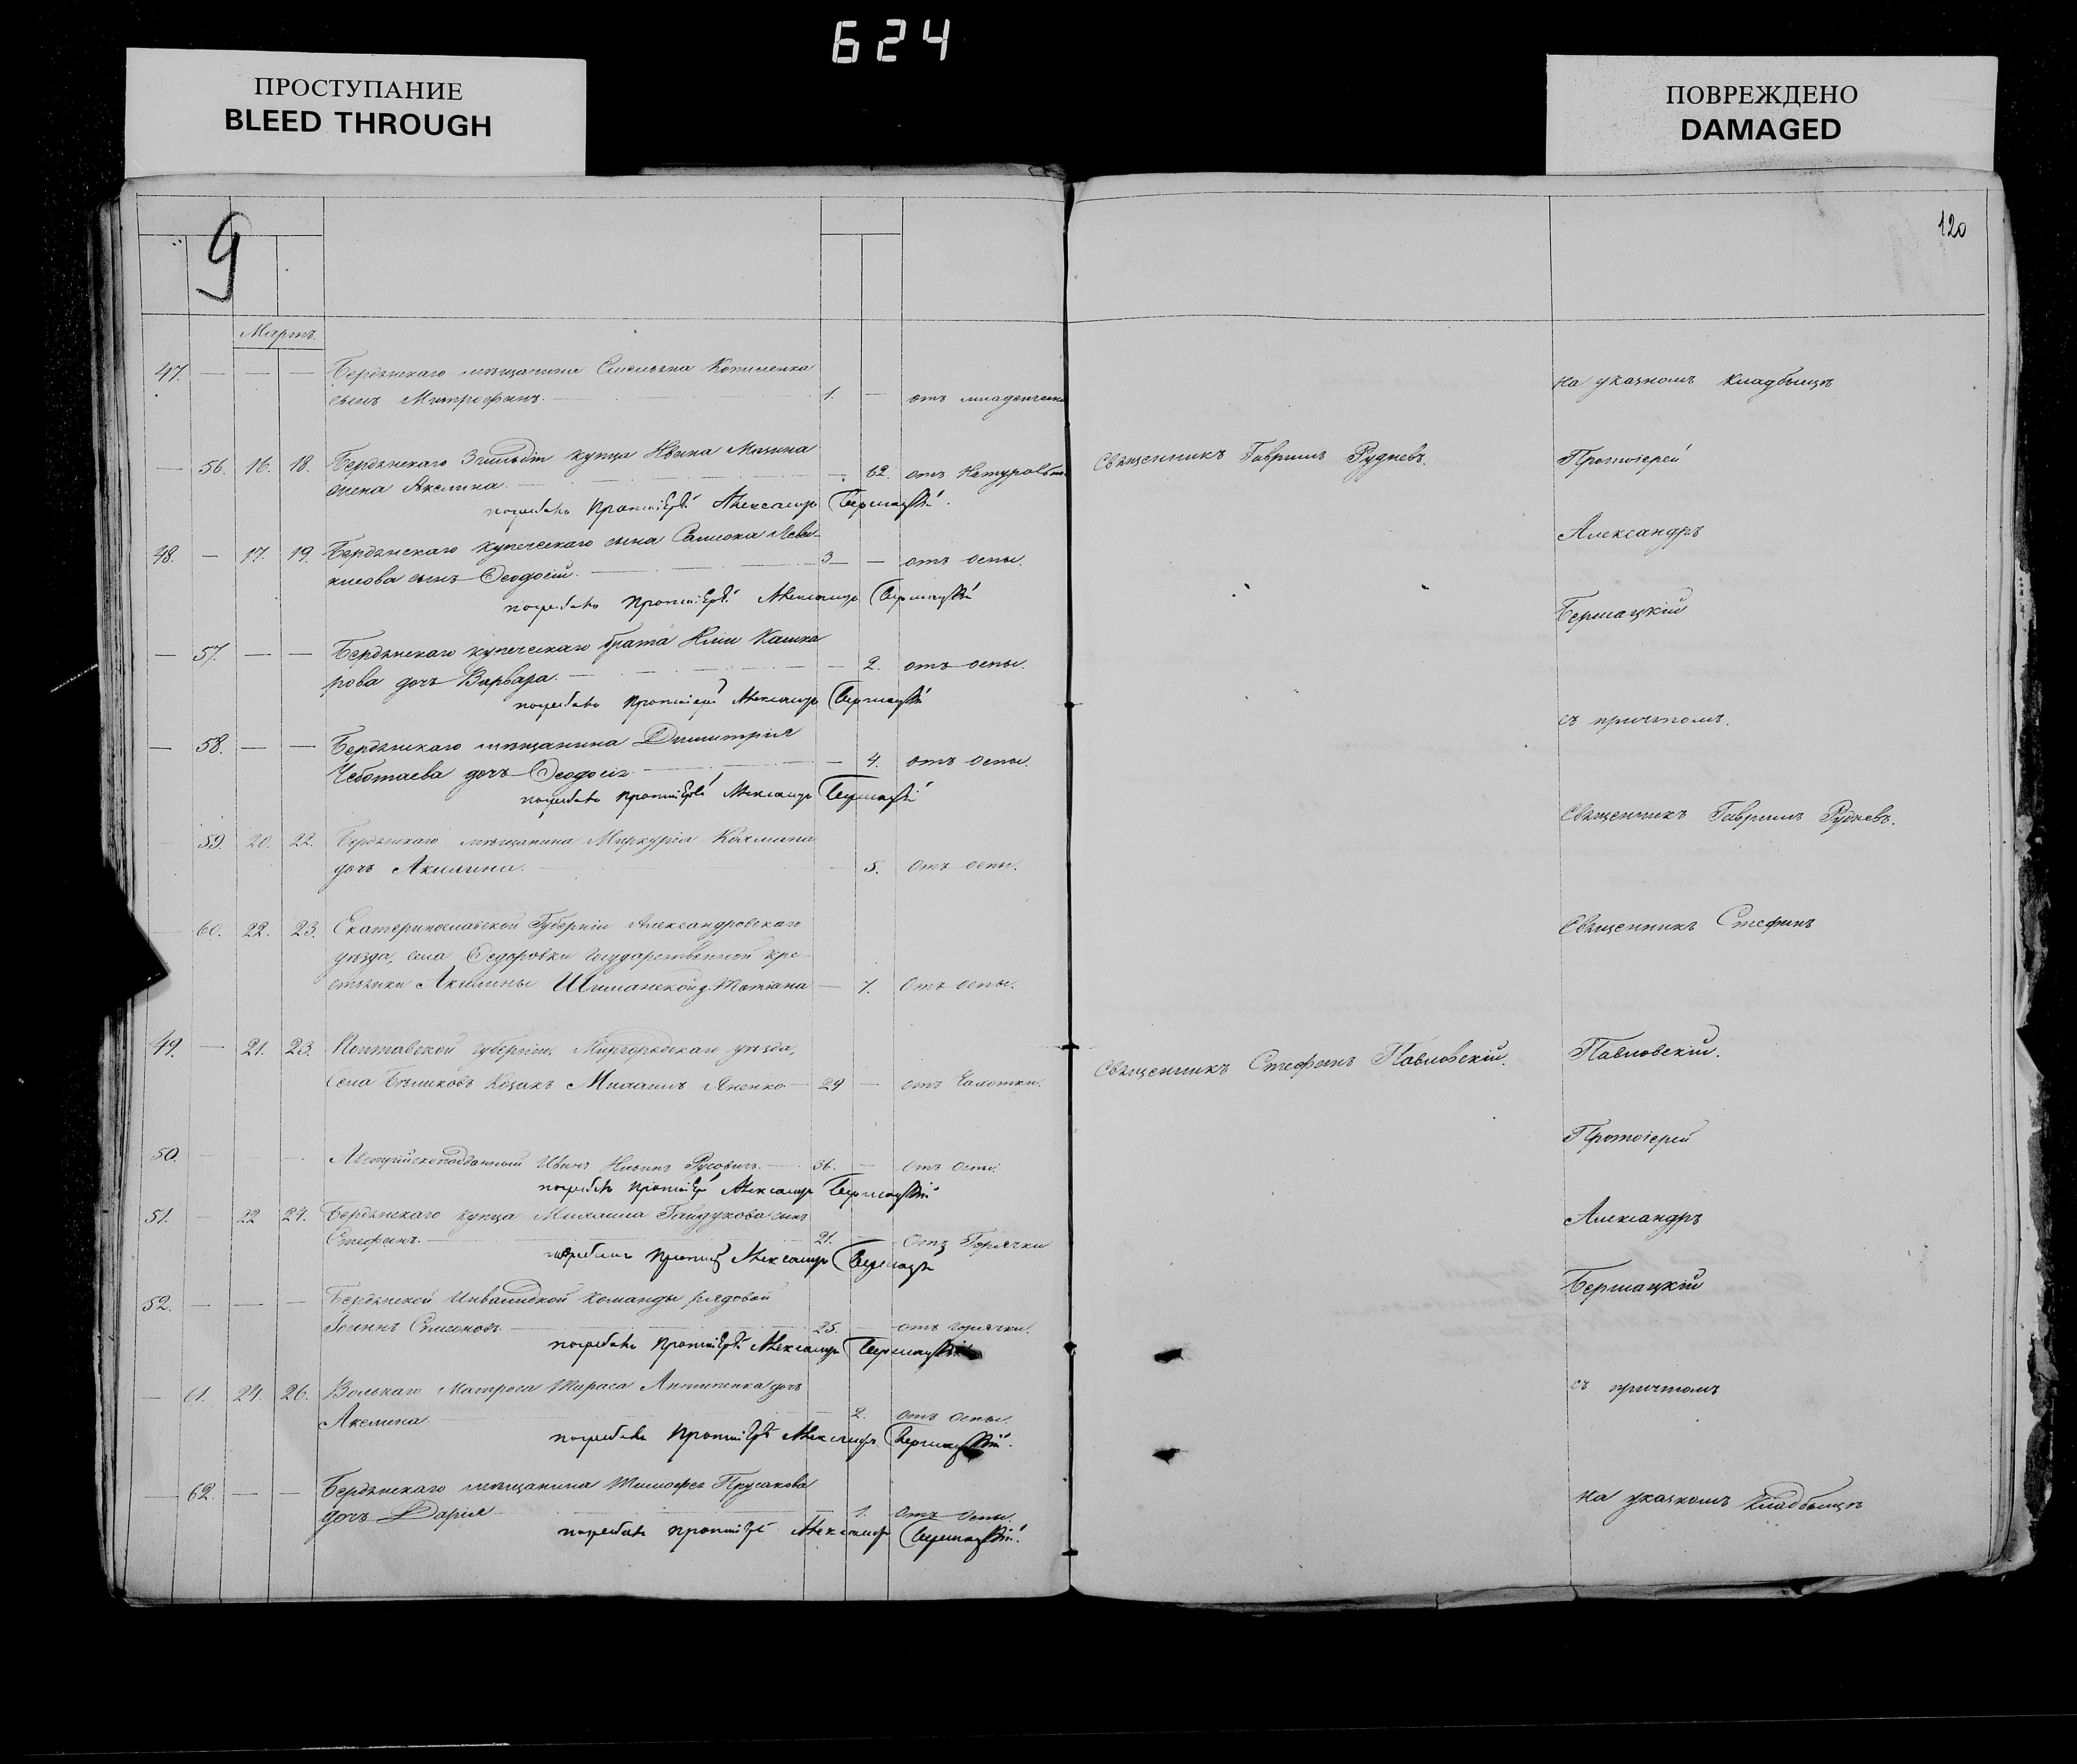 624
ПРОСТУПАНИЕ
BLEED THROUGH
ПОВРЕЖДЕНО
DAMAGED
9
120
Мартъ.
47. — — — Бердянскаго мѣщанина
сынъ Митрофанъ. 1. — отъ младенческ
— 56. 16. 18. Бердянскаго 3 гильдіи купца Ивана Мазина
жена Акилина. — 62. отъ Натуральн
погребалъ Протоіерей Александръ Бермацкій.
48. — 17. 19. Бердянскаго купеческаго сына
сынъ Ѳеодосій. 3 — отъ оспы.
погребалъ Протоіерей Александръ Бермацкій
— 57. — — Бердянскаго купеческаго брата Иліи Кашка
рова дочь Варвара. — 2. отъ оспы.
погребалъ Протоіерей Александръ Бермацкій
— 58. — — Бердянскаго мѣщанина Димитрія
Чеботаева дочь Ѳеодосія — 4. отъ оспы.
погребалъ Протоіерей Александръ Бермацкій
— 59. 20. 22. Бердянскаго мѣщанина Меркурія
дочь Акилина. — 5. отъ оспы.
— 60. 22. 23. Екатеринославской Губерніи Александровскаго
уѣзда, села Ѳедоровки Государственной кре-
стьянки Акилины Шиманской д. Татіана — 7. Отъ оспы.
49. — 21. 23. Полтавской губерніи, Миргородскаго уѣзда,
Села Бѣликовъ Козакъ Михаилъ Яненко 29 — отъ Чахотки.
50. — — — Австрійскоподданный Иванъ Ильинъ Русовичъ. 36. — отъ оспы.
погребалъ Протоіерей Александръ Бермацкій
51. — 22 24. Бердянскаго купца Михаила Гайдукова сынъ
Стефанъ. 21. — Отъ Горячки
погребалъ Протоіерей Александръ Бермацкій
52. — — — Бердянской Инвалидной команды рядовой
Іоаннъ Семеновъ. 25. — отъ горячки.
погребалъ Протоіерей Александръ Бермацкій
— 61. 24. 26. Вольнаго Матроса Тараса Антипенка дочь
Акилина — 2. отъ оспы.
погребалъ Протоіерей Александръ Бермацкій.
— 62. — — Бердянскаго мѣщанина Тимофея Прусакова
дочь Дарія — 1. Отъ оспы.
погребалъ Протоіерей Александръ Бермацкій.
Священникъ Гавриилъ Рудневъ.
Священникъ Стефанъ Павловскій.
на указномъ кладбищѣ
Протоіерей
Александръ
Бермацкій
съ причтомъ.
Священникъ Гавриилъ Рудневъ.
Священникъ Стефанъ
Павловскій.
Протоіерей
Александръ
Бермацкій
съ причтомъ
на указномъ кладбищѣ